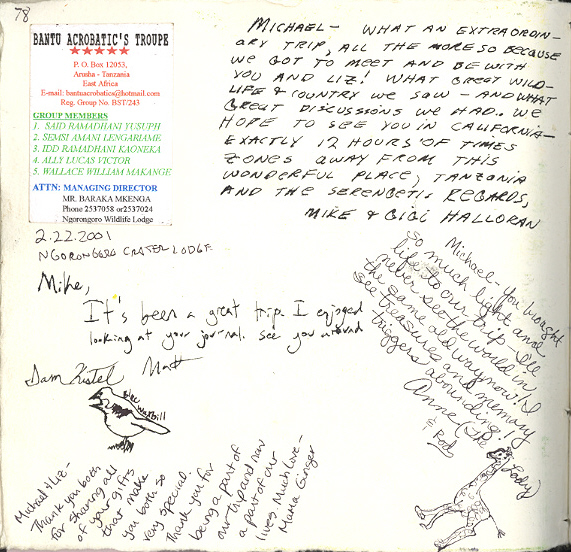 78
BANTU ACROBATIC'S TROUPE
P. O. Box 12053,
Arusha - Tanzania
East Africa
E-mail: bantuacrobatics@hotmail.com
Reg. Group No. BST/243
GROUP MEMBERS
1. SAID RAMADHANI YUSUPH
2. SEMSI AMANI LENGARIAME
3. IDD RAMADHANI KAONEKA
4. ALLY LUCAS VICTOR
5. WALLACE WILLIAM MAKANGE
ATTN: MANAGING DIRECTOR
MR. BARAKA MKENGA
Phone 2537058 or2537024
Ngorongoro Wildlife Lodge
2.22.2001
NGORONGORO CRATER LODGE
MICHAEL - WHAT AN EXTRAORDIN-
ARY TRIP, ALL THE MORE SO BECAUSE
WE GOT TO MEET AND BE WITH
YOU AND LIZ! WHAT GREAT WILD-
LIFE & COUNTRY WE SAW - AND WHAT
GREAT DISCUSSIONS WE HAD. WE
HOPE TO SEE YOU IN CALIFORNIA -
EXACTLY 12 HOURS OF TIMES
ZONES AWAY FROM THIS
WONDERFUL PLACE, TANZANIA
AND THE SERENGETI. REGARDS,
MIKE & GIGI HALLORAN
Mike,
It's been a great trip. I enjoyed
looking at your journal. See you around
Matt
Blue Waxbill
Michael - You brought
so much light and
life to our trip. I'll
never see the world in
the same old way now! I'll
see treasures and memory
triggers abounding!
Anne (the
Lady)
Michael & Liz -
Thank you both
for sharing all
of your gifts
that make
you both so
very special.
Thank you for
being a part of
our trip and now
a part of our
lives. Much Love -
Maria